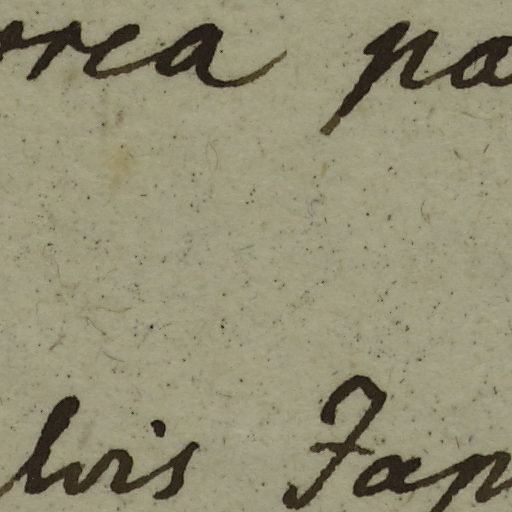 rrea pa
lvis Jap